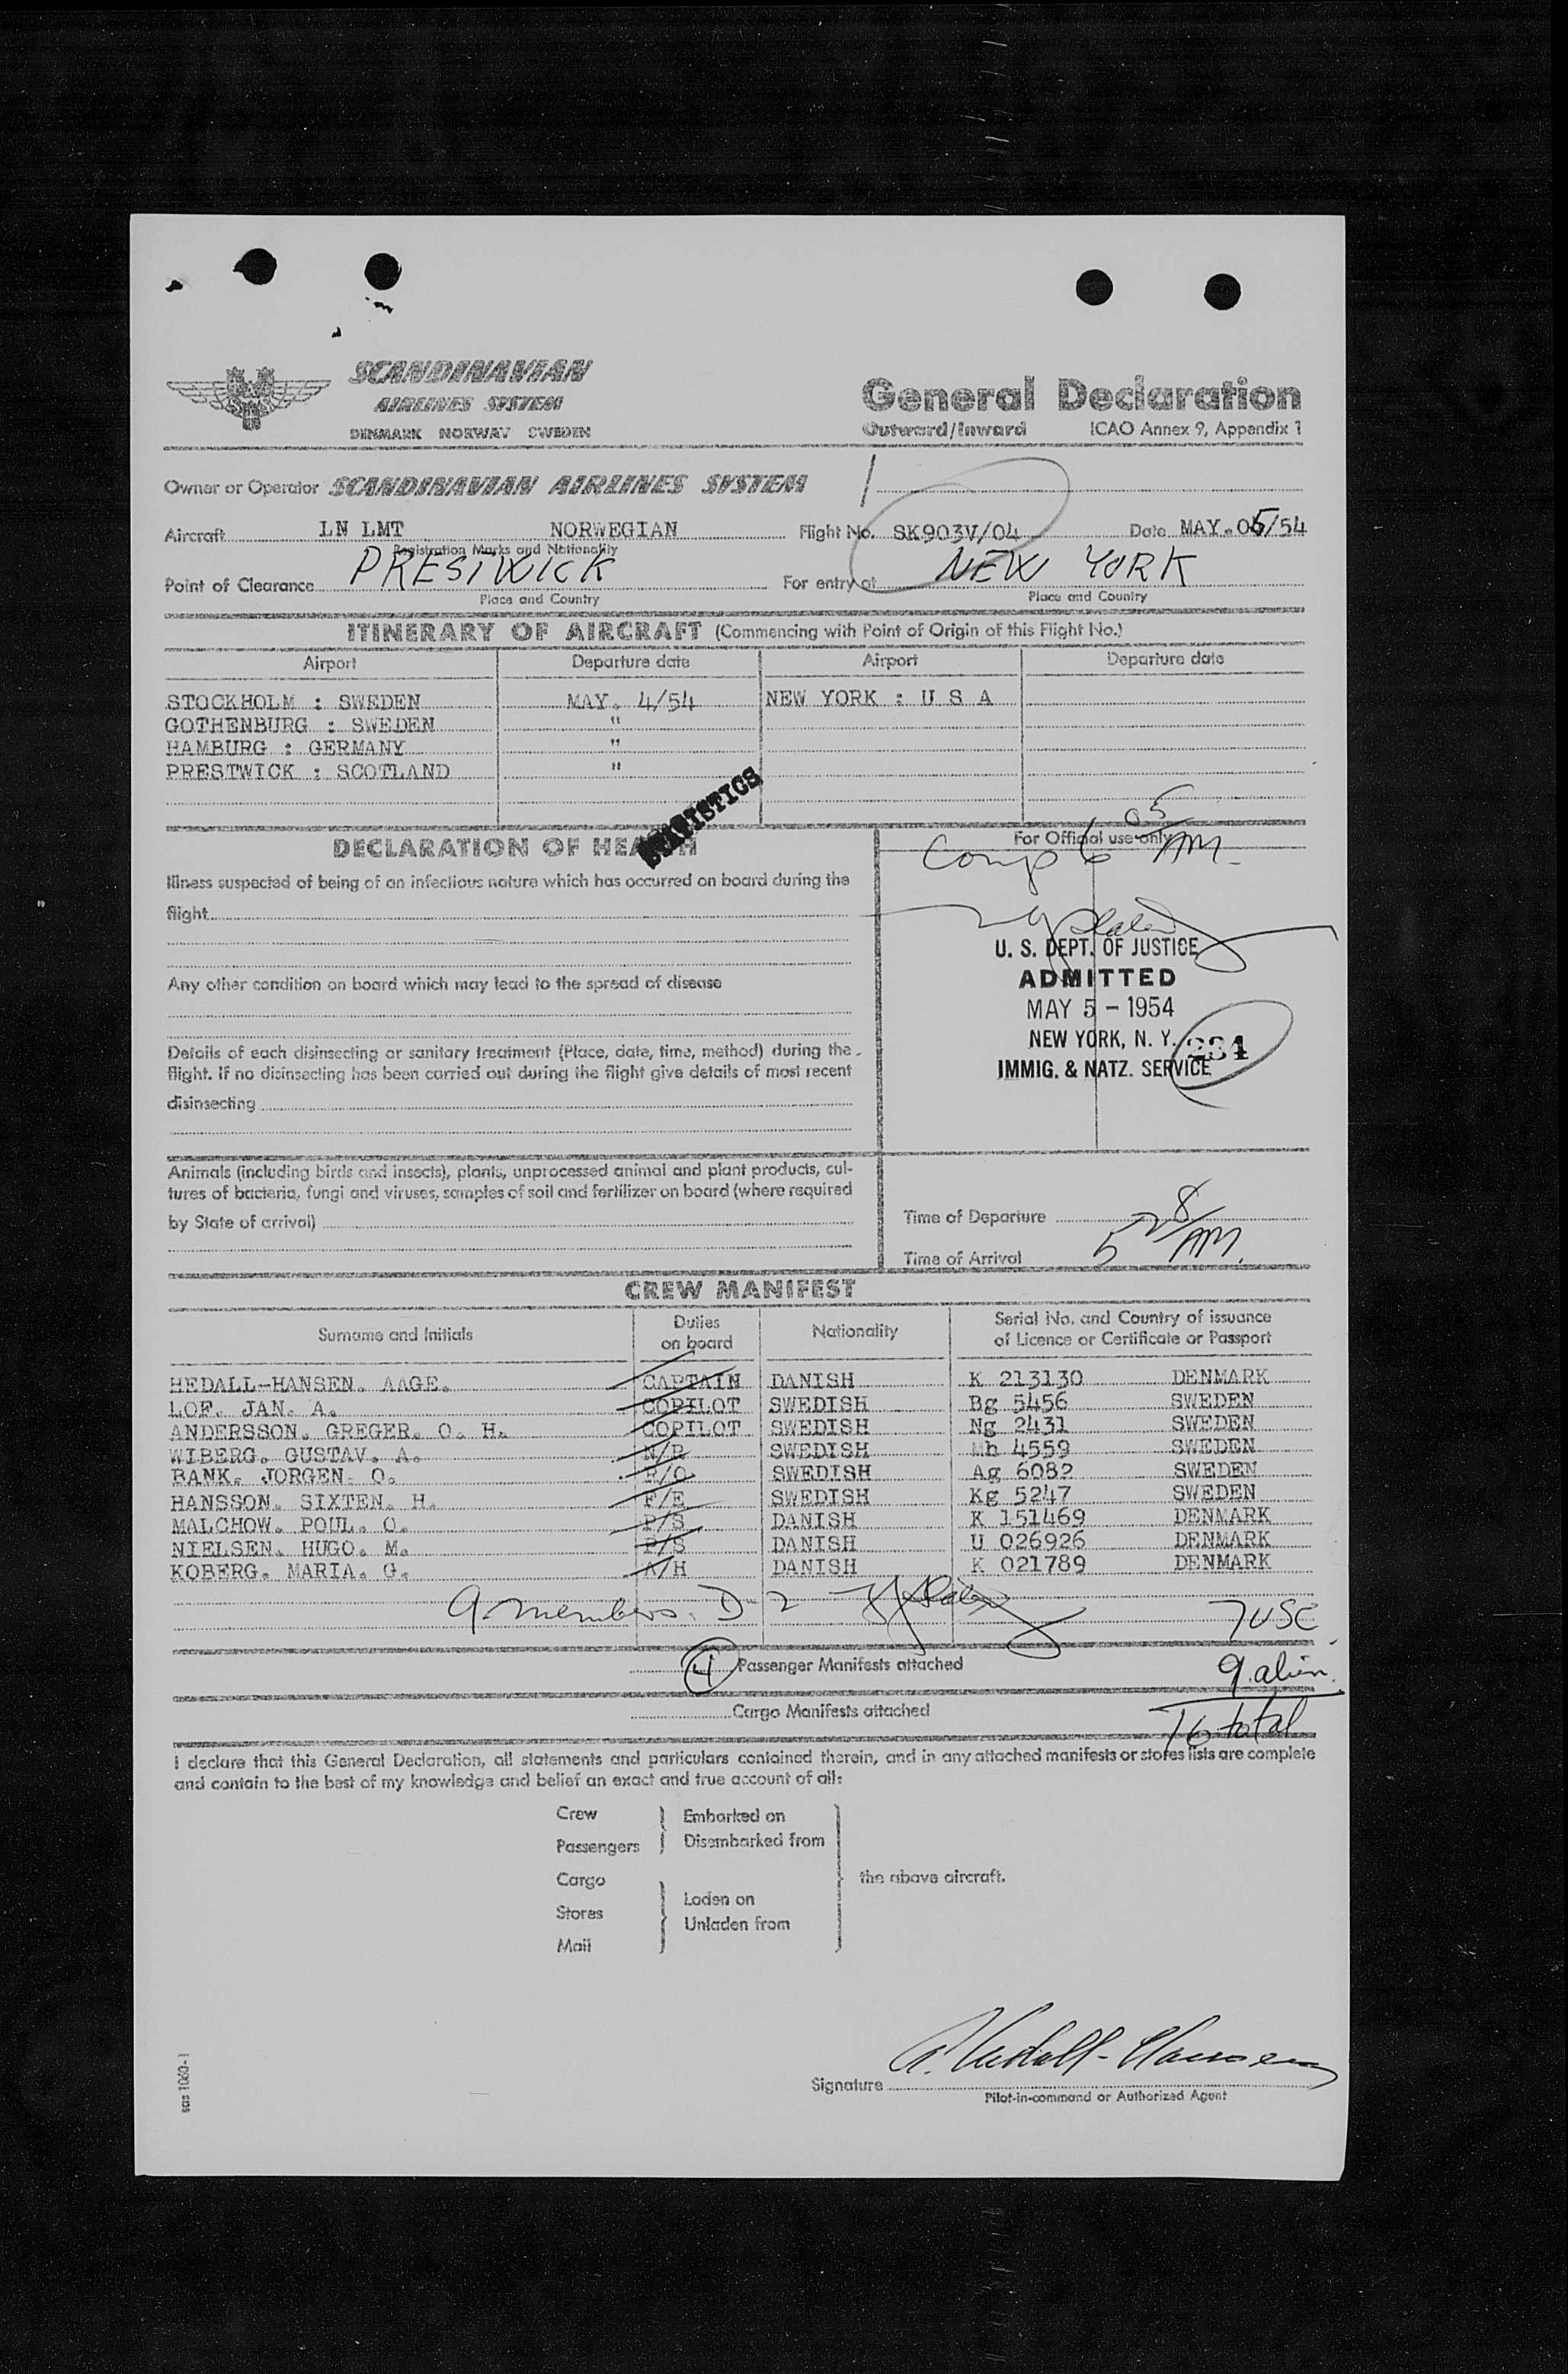 SCANDINAVIAN
AIRLINES SYSTEM
DENMARK NORWAY SWEDEN
General Declaration
Outward/Inward ICAO Annex 9, Appendix 1
Owner or Operator SCANDINAVIAN AIRLINES SYSTEM
Aircraft LN LMT NORWEGIAN Flight No. SK903V/04 Date MAY.05/54
Registration Marks and Nationality
Point of Clearance PRESTWICK For entry at NEW YORK
Place and Country Place and Country
ITINERARY OF AIRCRAFT (Commencing with Point of Origin of this Flight No.)
Airport Departure date Airport Departure date
STOCKHOLM : SWEDEN MAY. 4/54 NEW YORK : U S A
GOTHENBURG : SWEDEN "
HAMBURG : GERMANY "
PRESTWICK : SCOTLAND "
STATISTICS
DECLARATION OF HEALTH
Illness suspected of being of an infectious nature which has occurred on board during the
flight
Any other condition on board which may lead to the spread of disease
Details of each disinsecting or sanitary treatment (Place, date, time, method) during the
flight. If no disinsecting has been carried out during the flight give details of most recent
disinsecting
Animals (including birds and insects), plants, unprocessed animal and plant products, cul-
tures of bacteria, fungi and viruses, samples of soil and fertilizer on board (where required
by State of arrival)
For Official use only
Comp 6 05 AM.
U. S. DEPT. OF JUSTICE
ADMITTED
MAY 5 - 1954
NEW YORK, N. Y. 234
IMMIG. & NATZ. SERVICE
Time of Departure
Time of Arrival 5 28 AM.
CREW MANIFEST
Surname and Initials Duties on board Nationality Serial No. and Country of issuance of Licence or Certificate or Passport
HEDALL-HANSEN. AAGE. CAPTAIN DANISH K 213130 DENMARK
LOF. JAN. A. COPILOT SWEDISH Bg 5456 SWEDEN
ANDERSSON. GREGER. O. H. COPILOT SWEDISH Ng 2431 SWEDEN
WIBERG. GUSTAV. A. N/R SWEDISH Mh 4559 SWEDEN
BANK. JORGEN. O. R/O SWEDISH Ag 6082 SWEDEN
HANSSON. SIXTEN. H. F/E SWEDISH Kg 5247 SWEDEN
MALCHOW. POUL. O. P/S DANISH K 151469 DENMARK
NIELSEN. HUGO. M. P/S DANISH U 026926 DENMARK
KOBERG. MARIA. G. A/H DANISH K 021789 DENMARK
9 members. D-2
7 USC
4 Passenger Manifests attached 9 alien.
Cargo Manifests attached 16 total
I declare that this General Declaration, all statements and particulars contained therein, and in any attached manifests or stores lists are complete
and contain to the best of my knowledge and belief an exact and true account of all:
Crew Embarked on
Passengers Disembarked from
Cargo the above aircraft.
Laden on
Stores
Unladen from
Mail
Signature A. Hedall-Hansen
Pilot-in-command or Authorized Agent
sas 1060-1